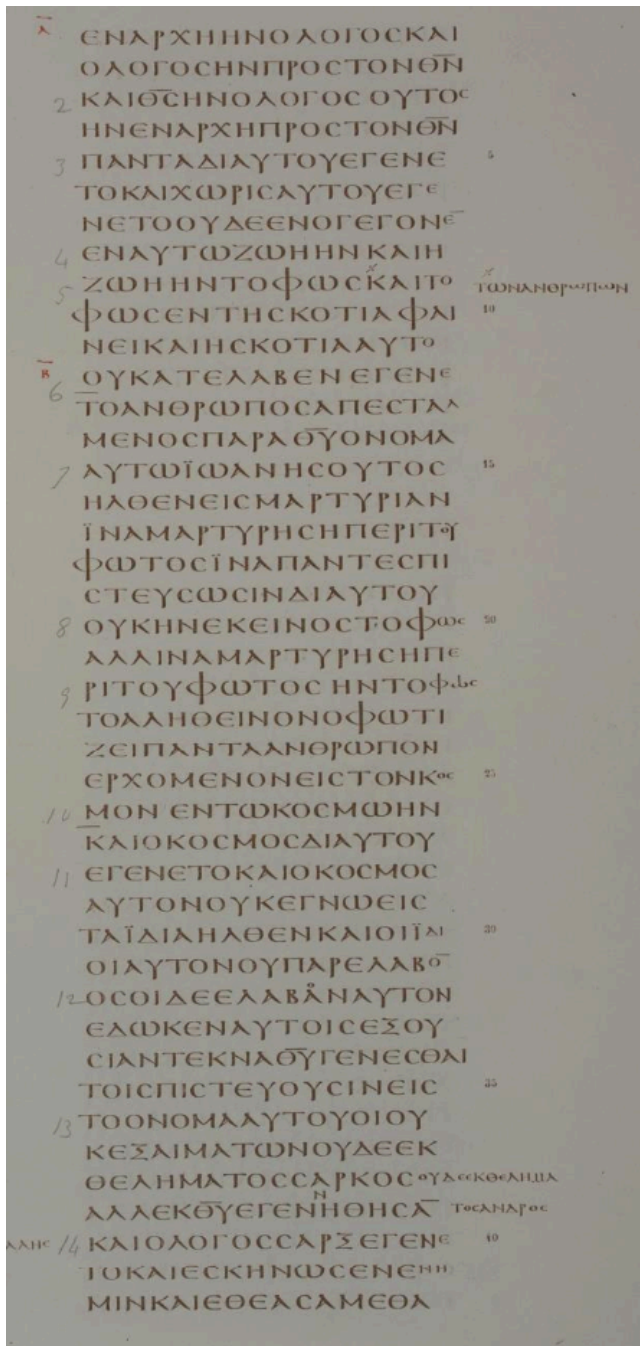 Α ΕΝΑΡΧΗΗΝΟΛΟΓΟϹΚΑΙ
ΟΛΟΓΟϹΗΝΠΡΟϹΤΟΝΘ̅Ν̅
2 ΚΑΙΘ̅Ϲ̅ΗΝΟΛΟΓΟϹ ΟΥΤΟϹ
ΗΝΕΝΑΡΧΗΠΡΟϹΤΟΝΘ̅Ν̅
3 ΠΑΝΤΑΔΙΑΥΤΟΥΕΓΕΝΕ 5
ΤΟΚΑΙΧΩΡΙϹΑΥΤΟΥΕΓΕ
ΝΕΤΟΟΥΔΕΕΝΟΓΕΓΟΝΕ̅
4 ΕΝΑΥΤΩΖΩΗΗΝΚΑΙΗ
5 ΖΩΗΗΝΤΟΦΩϹΚΑΙΤΟ ΤΩΝΑΝΘΡΩΠΩΝ
ΦΩϹΕΝΤΗϹΚΟΤΙΑΦΑΙ 10
ΝΕΙΚΑΙΗϹΚΟΤΙΑΑΥΤΟ
Β ΟΥΚΑΤΕΛΑΒΕΝΕΓΕΝΕ
6 ΤΟΑΝΘΡΩΠΟϹΑΠΕϹΤΑΛ
ΜΕΝΟϹΠΑΡΑΘ̅Υ̅ΟΝΟΜΑ
7 ΑΥΤΩΪΩΑΝΗϹΟΥΤΟϹ 15
ΗΛΘΕΝΕΙϹΜΑΡΤΥΡΙΑΝ
ΪΝΑΜΑΡΤΥΡΗϹΗΠΕΡΙΤΟΥ
ΦΩΤΟϹΪΝΑΠΑΝΤΕϹΠΙ
ϹΤΕΥϹΩϹΙΝΔΙΑΥΤΟΥ
8 ΟΥΚΗΝΕΚΕΙΝΟϹΤΟΦΩϹ 20
ΑΛΛΙΝΑΜΑΡΤΥΡΗϹΗΠΕ
9 ΡΙΤΟΥΦΩΤΟϹ ΗΝΤΟΦΩϹ
ΤΟΑΛΗΘΕΙΝΟΝΟΦΩΤΙ
ΖΕΙΠΑΝΤΑΑΝΘΡΩΠΟΝ
ΕΡΧΟΜΕΝΟΝΕΙϹΤΟΝΚΟϹ 25
10 ΜΟΝ ΕΝΤΩΚΟϹΜΩΗΝ
ΚΑΙΟΚΟϹΜΟϹΔΙΑΥΤΟΥ
11 ΕΓΕΝΕΤΟΚΑΙΟΚΟϹΜΟϹ
ΑΥΤΟΝΟΥΚΕΓΝΩΕΙϹ
ΤΑΪΔΙΑΗΛΘΕΝΚΑΙΟΙΪΔΙ 30
ΟΙΑΥΤΟΝΟΥΠΑΡΕΛΑΒΟ̅
12 ΟϹΟΙΔΕΕΛΑΒΑΝΑΥΤΟΝ
ΕΔΩΚΕΝΑΥΤΟΙϹΕΞΟΥ
ϹΙΑΝΤΕΚΝΑΘ̅Υ̅ΓΕΝΕϹΘΑΙ
ΤΟΙϹΠΙϹΤΕΥΟΥϹΙΝΕΙϹ 35
13 ΤΟΟΝΟΜΑΑΥΤΟΥΟΙΟΥ
ΚΕΞΑΙΜΑΤΩΝΟΥΔΕΕΚ
ΘΕΛΗΜΑΤΟϹϹΑΡΚΟϹ ΟΥΔΕΕΚΘΕΛΗΜΑ
ΑΛΛΕΚΘ̅Υ̅ΕΓΕΝΝΗΘΗϹΑ̅ ΤΟϹΑΝΔΡΟϹ
14 ΚΑΙΟΛΟΓΟϹϹΑΡΞΕΓΕΝΕ 40
ΤΟΚΑΙΕϹΚΗΝΩϹΕΝΕΝΗ
ΜΙΝΚΑΙΕΘΕΑϹΑΜΕΘΑ